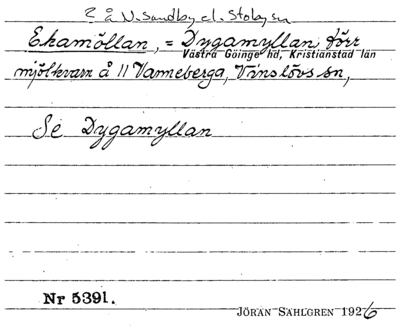 ? å N. Sandby el. Stoby sn
Ekamöllan, = Dygamyllan, förr
Västra Göinge hd, Kristianstad län
mjölkvarn å 11 Vanneberga, Vinslövs sn,
Se Dygamyllan
Nr 5391.
JÖRAN SAHLGREN 1926